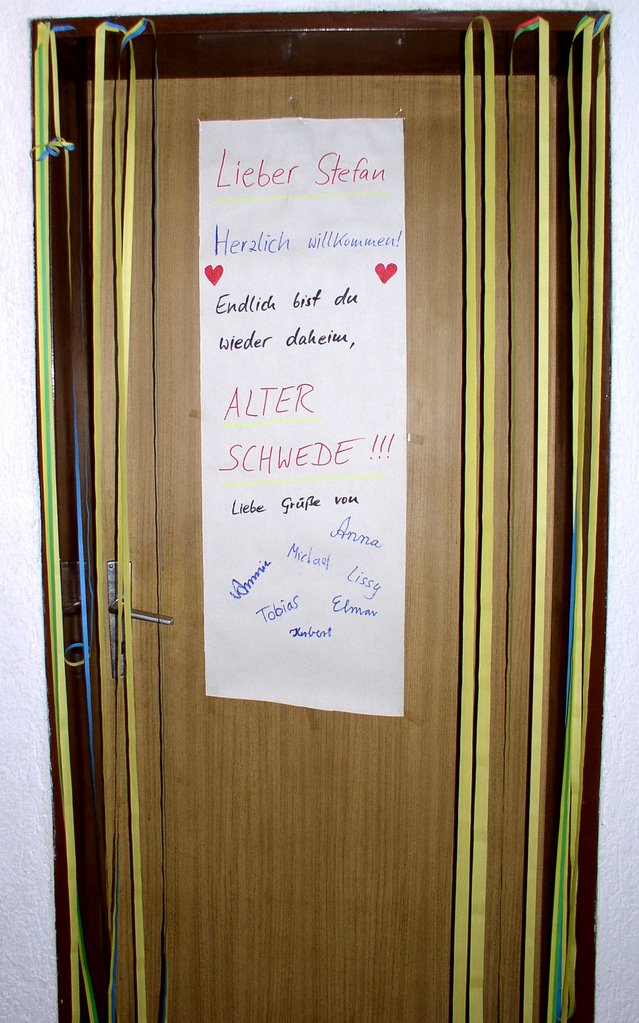 Lieber Stefan
Herzlich willkommen!
Endlich bist du
wieder daheim,
ALTER
SCHWEDE!!!
Liebe Grüße von
Anna
Michael
Annnie
Lissy
Tobias
Elmar
Herbert